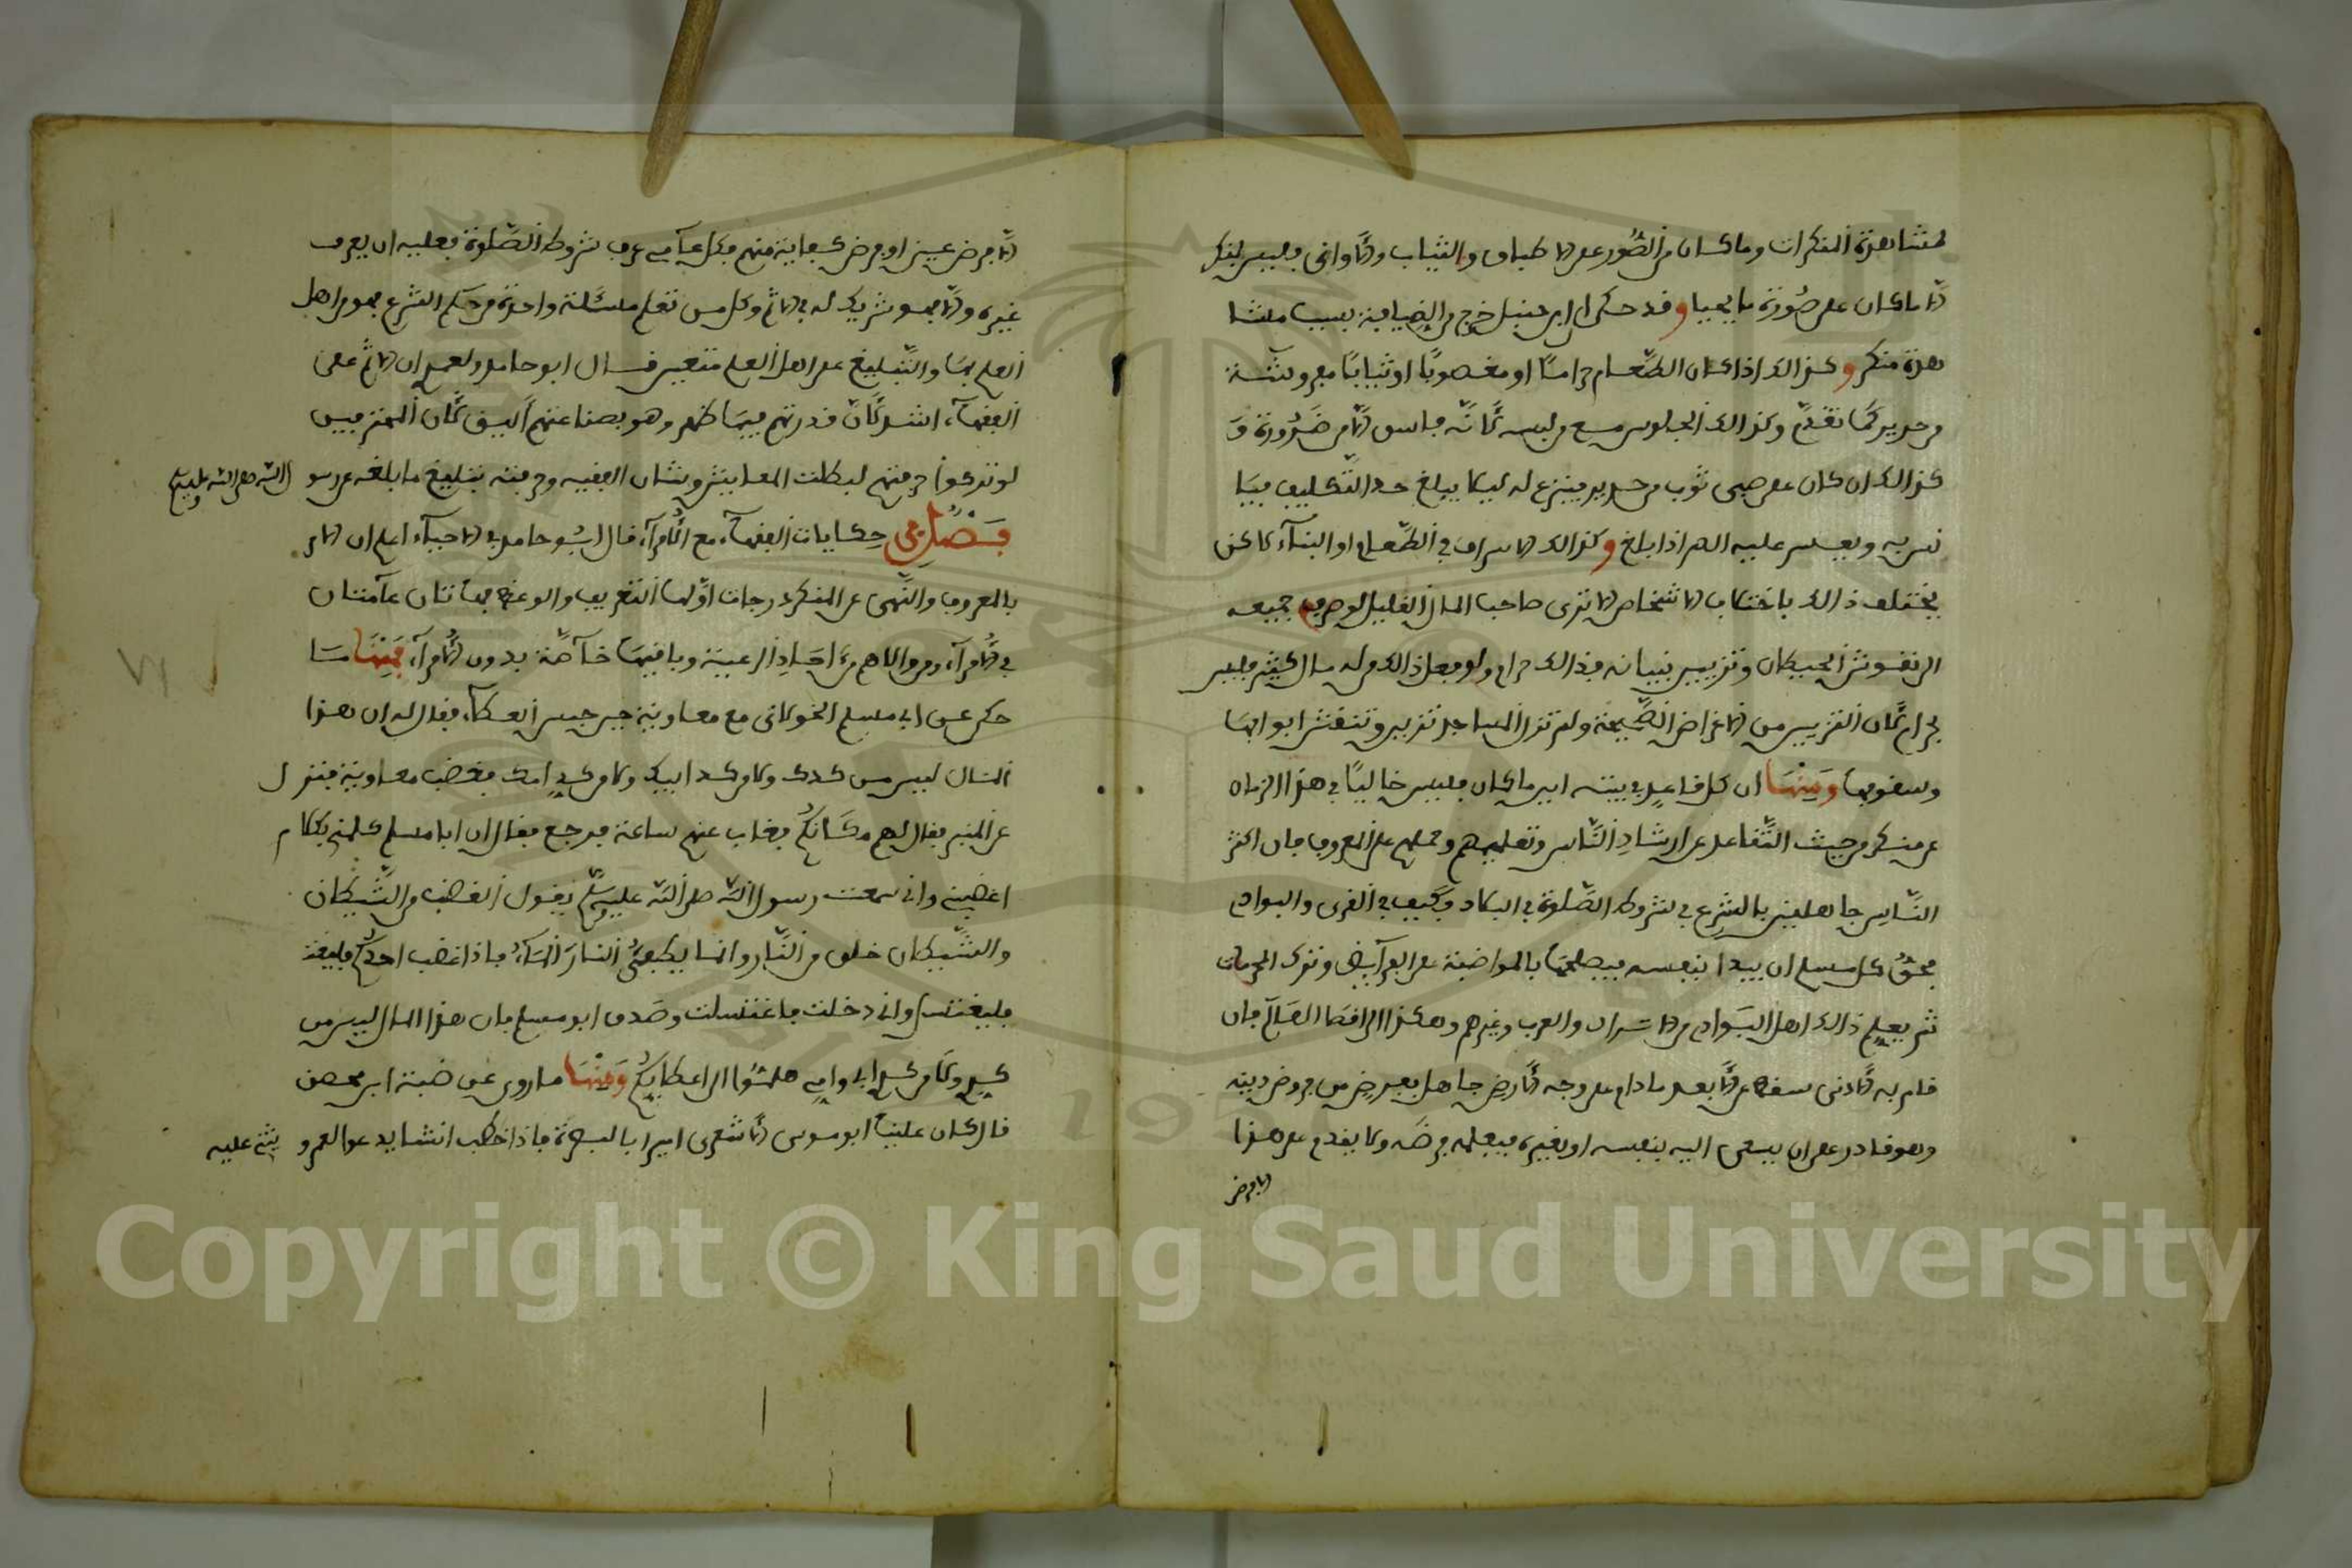 لمشاهدة المنكرات وما كان من الصور على الاطباق والثياب والاوانى فليس بمنكر
الا ما كان على صورة ما يحيا وقد حكى ان ابن حنبل خرج من الضيافة بسبب مشا
هدة منكر وكذالك اذا كان الطعام حراما او مغصوبا او ثيابا مفروشة
من حرير كما تقدم وكذالك الجلوس مع من لبسه لانه فاسق الا من ضرورة و
كذالك ان كان على صبي ثوب من حرير فينزع له ليلا يبلغ حد التكليف فيتا
نس به ويعسر عليه الصبر اذا بلغ وكذالك الاسراف في الطعام او البناء لاكن
يختلف ذالك باختلاف الاشخاص الا ترى صاحب المال القليل لو صرف جميعه
الى نقوش الحيطان وتزيين بنيانه فذالك حرام ولو فعل ذالك من له مال كثير فليس
بحرام لان التزيين من الاغراض الصحيحة ولم تزل المساجد تزين وتنقش ابوابها
وسقوفها ومنها ان كل قاعد في بيته اين ما كان فليس خاليا في هذا الزمان
عن منكر من حيث التقاعد عن ارشاد الناس وتعليمهم وحملهم على المعروف فان اكثر
الناس جاهلين بالشرع في شروط الصلوة في البلاد فكيف في القرى والبوادي
فحق كل مسلم ان يبدا بنفسه فيصلحها بالمواظبة على الفرائض وترك المحرمات
ثم يعلم ذالك اهل البوادي من الاكراد والعرب وغيرهم وهكذا الى اقصا العالم فان
قام به الادنى سقط عن الابعد ما دام على وجه الارض جاهل بفرض من فروض دينه
وهو قادر على ان يسعى اليه بنفسه او بغيره فيعلمه فرضه ولا يقدم على هذا
الا فرض
الا فرض عين او فرض كفاية منهم فكل عامي عرف شروط الصلوة فعليه ان يعرف
غيره والا فهو شريك له في الاثم وكل من تعلم مسئلة واحدة من حكم الشرع فهو من اهل
العلم بها والتبليغ على اهل العلم متعين قال ابو حامد ولعمري ان الاثم على
الفقهاء اشد لان قدرتهم فيها اظهر وهو بصناعتهم اليق لان المحترفين
لو تركوا حرفتهم لبطلت المعايش وشان الفقيه وحرفته تبليغ ما ابلغه عن رسو
ل الله صلى الله عليه وسلم
فصل في حكايات الفقهاء مع الامراء قال ابو حامد في الاحياء اعلم ان الامر
بالمعروف والنهي عن المنكر درجات اولها التعريف والوعظ فهاتان عامتان
في الامراء ومن والاهم من احاد الرعية وباقيها خاصة بدون الامراء فمنها ما
حكي عن ابي مسلم الخولاني مع معاوية حين حبس العطاء فقال له ان هذا
المال ليس من كدك ولا من كد ابيك ولا من كد امك فغضب معاوية فنزل
عن المنبر فقال لهم مكانكم فغاب عنهم ساعة فرجع فقال ان ابا مسلم كلمني بكلام
اغضبني واني سمعت رسول الله صلى الله عليه وسلم يقول الغضب من الشيطان
والشيطان خلق من النار وانما يطفئ النار الماء فاذا غضب احدكم فليغت
فليغتسل واني دخلت فاغتسلت وصدق ابو مسلم فان هذا المال ليس من
كدي ولا من كد ابي وامي هلموا الى اعطايكم ومنها ما روي عن ضبة ابن محصن
قال كان علينا ابو موسى الاشعرى اميرا بالبصرة فاذا خطب انشا يدعو العمر و يثني عليه
Copyright © King Saud University
195